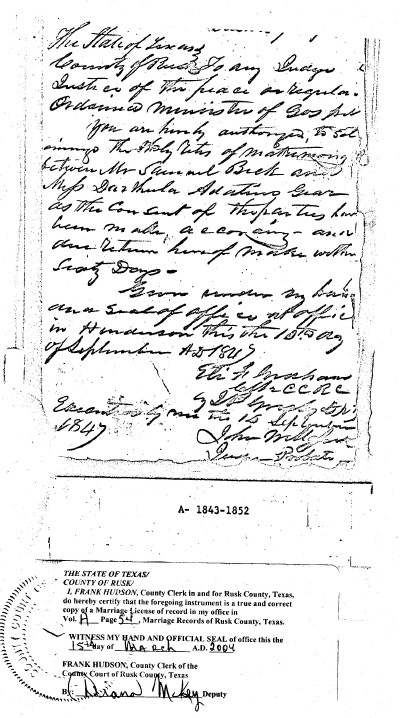 The State of Texas
County of Rusk To any Judge
Justice of the peace or regular
Ordained Minister of Gospel
You are hereby authorized, to sol
emnize the Holy Rites of matrimony
between Mr Samuel Beck and
Miss Darthula Adaline Gear
as the Consent of the parties have
been made according and
due return hereof make within
Sixty Days -
Given under my hand
and Seal of office at office
in Henderson this the 10th day
of September AD 1847
Clk CCRC
by
Executed by me the 15 September
1847
John
Probate
A- 1843-1852
THE STATE OF TEXAS/
COUNTY OF RUSK/
I, FRANK HUDSON, County Clerk in and for Rusk County, Texas,
do hereby certify that the foregoing instrument is a true and correct
copy of a Marriage License of record in my office in
Vol. A Page 54, Marriage Records of Rusk County, Texas.
WITNESS MY HAND AND OFFICIAL SEAL of office this the
15th day of March A.D. 2004
FRANK HUDSON, County Clerk of the
County Court of Rusk County, Texas
By: Diana McKey Deputy